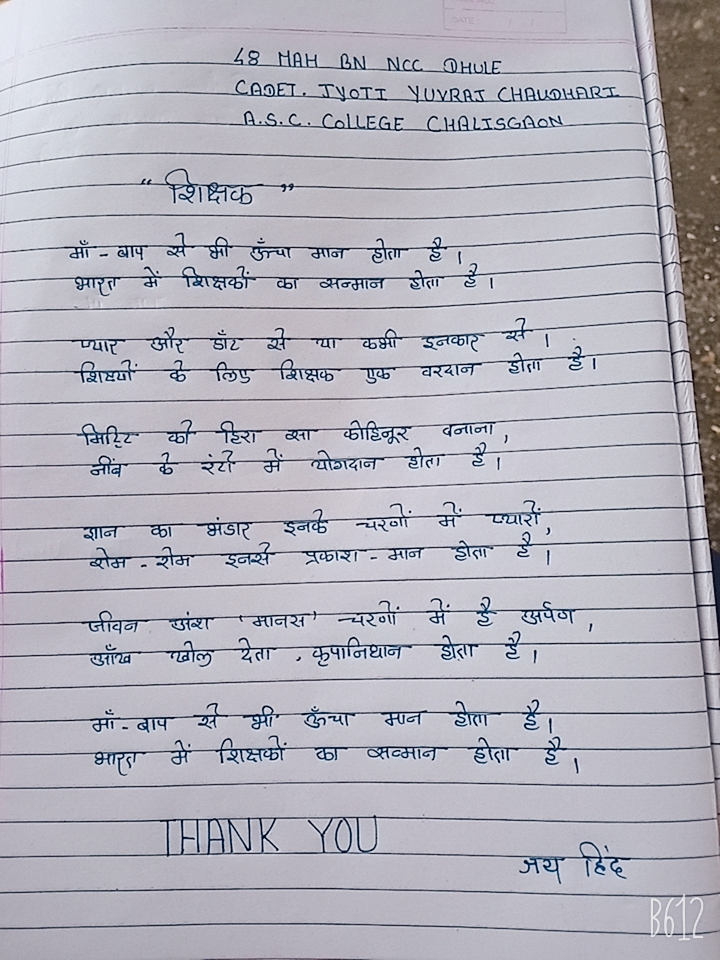 48 MAH BN NCC DHULE
CADET. JYOTI YUVRAJ CHAUDHARI
A.S.C. COLLEGE CHALISGAON
“ शिक्षक ”
माँ - बाप से भी ऊँचा मान होता है।
भारत में शिक्षकों का सन्मान होता है।
प्यार और डाँट से या कभी इनकार से।
शिष्यों के लिए शिक्षक एक वरदान होता है।
मिट्टि को हिरा सा कोहिनूर बनाना,
नींब के रंटो में योगदान होता है।
ज्ञान का भंडार इनके चरणों में प्यारों,
रोम - रोम इनसे प्रकाश - मान होता है।
जीवन अंश 'मानस' चरणों में है अर्पण,
आँख खोल देता , कृपानिधान होता है।
माँ - बाप से भी ऊँचा मान होता है।
भारत में शिक्षकों का सन्मान होता है।
THANK YOU
जय हिंद
B612